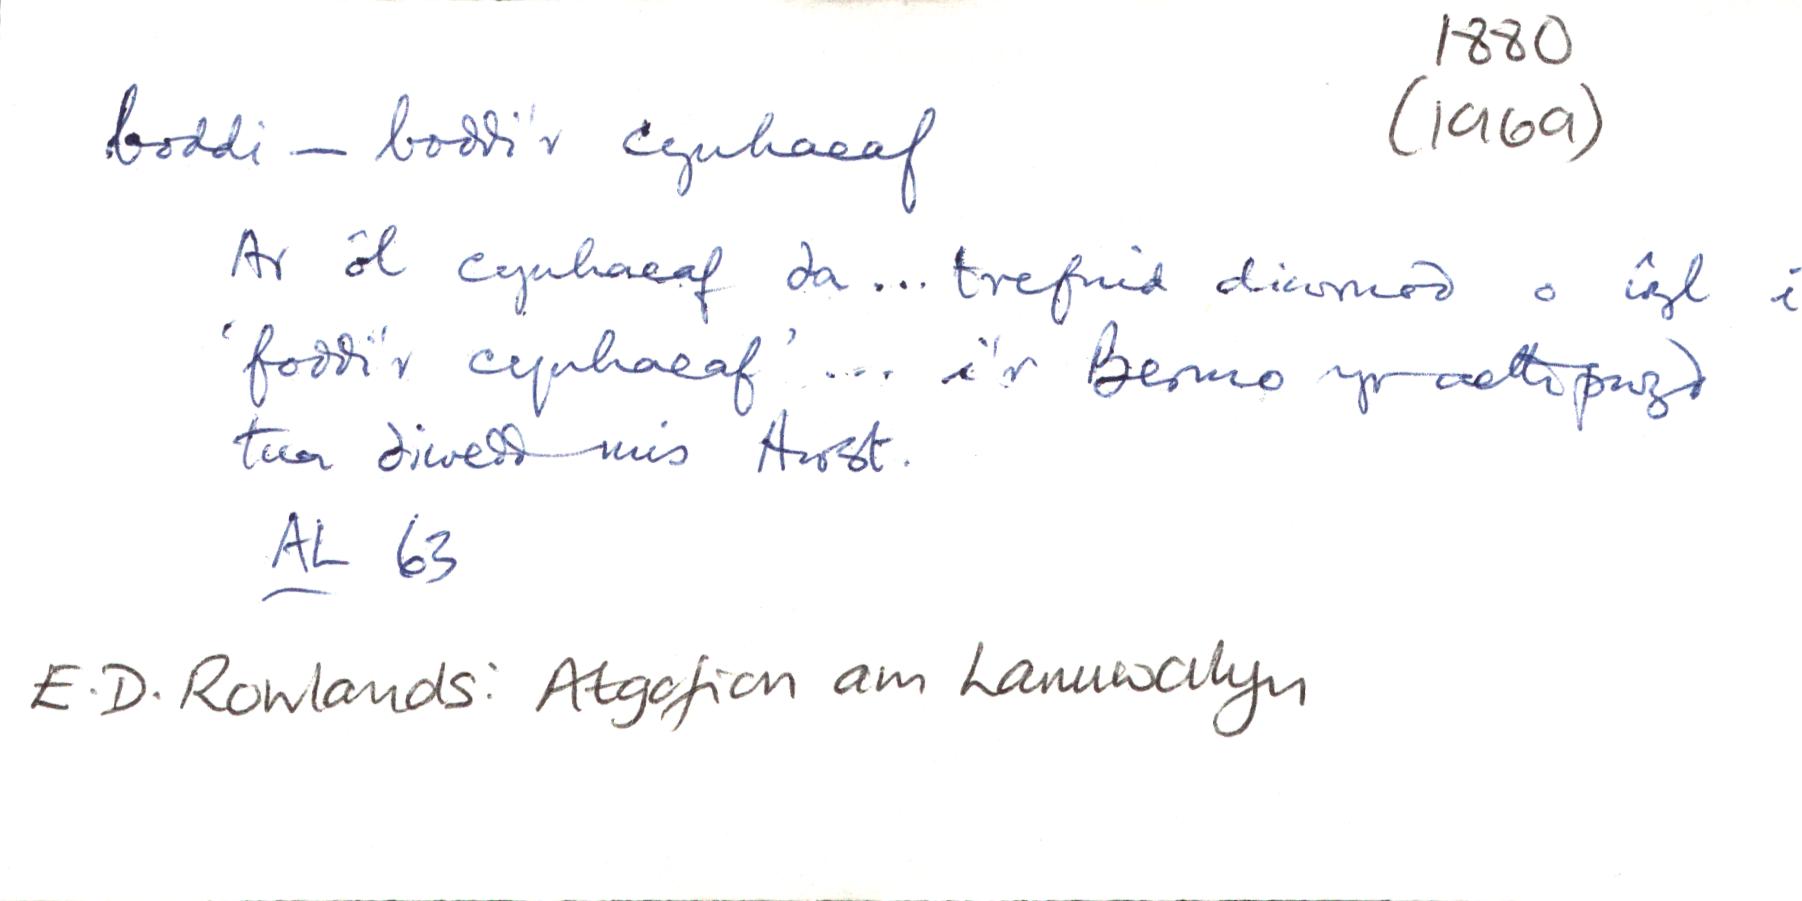 1880
(1969)
boddi – boddi'r cynhaeaf
Ar ôl cynhaeaf da ... trefnid diwrnod o ŵyl i
'foddi'r cynhaeaf' ... i'r Bermo yr aethpwyd
tua diwedd mis Awst.
AL 63
E.D. Rowlands: Atgofion am Lanuwchllyn